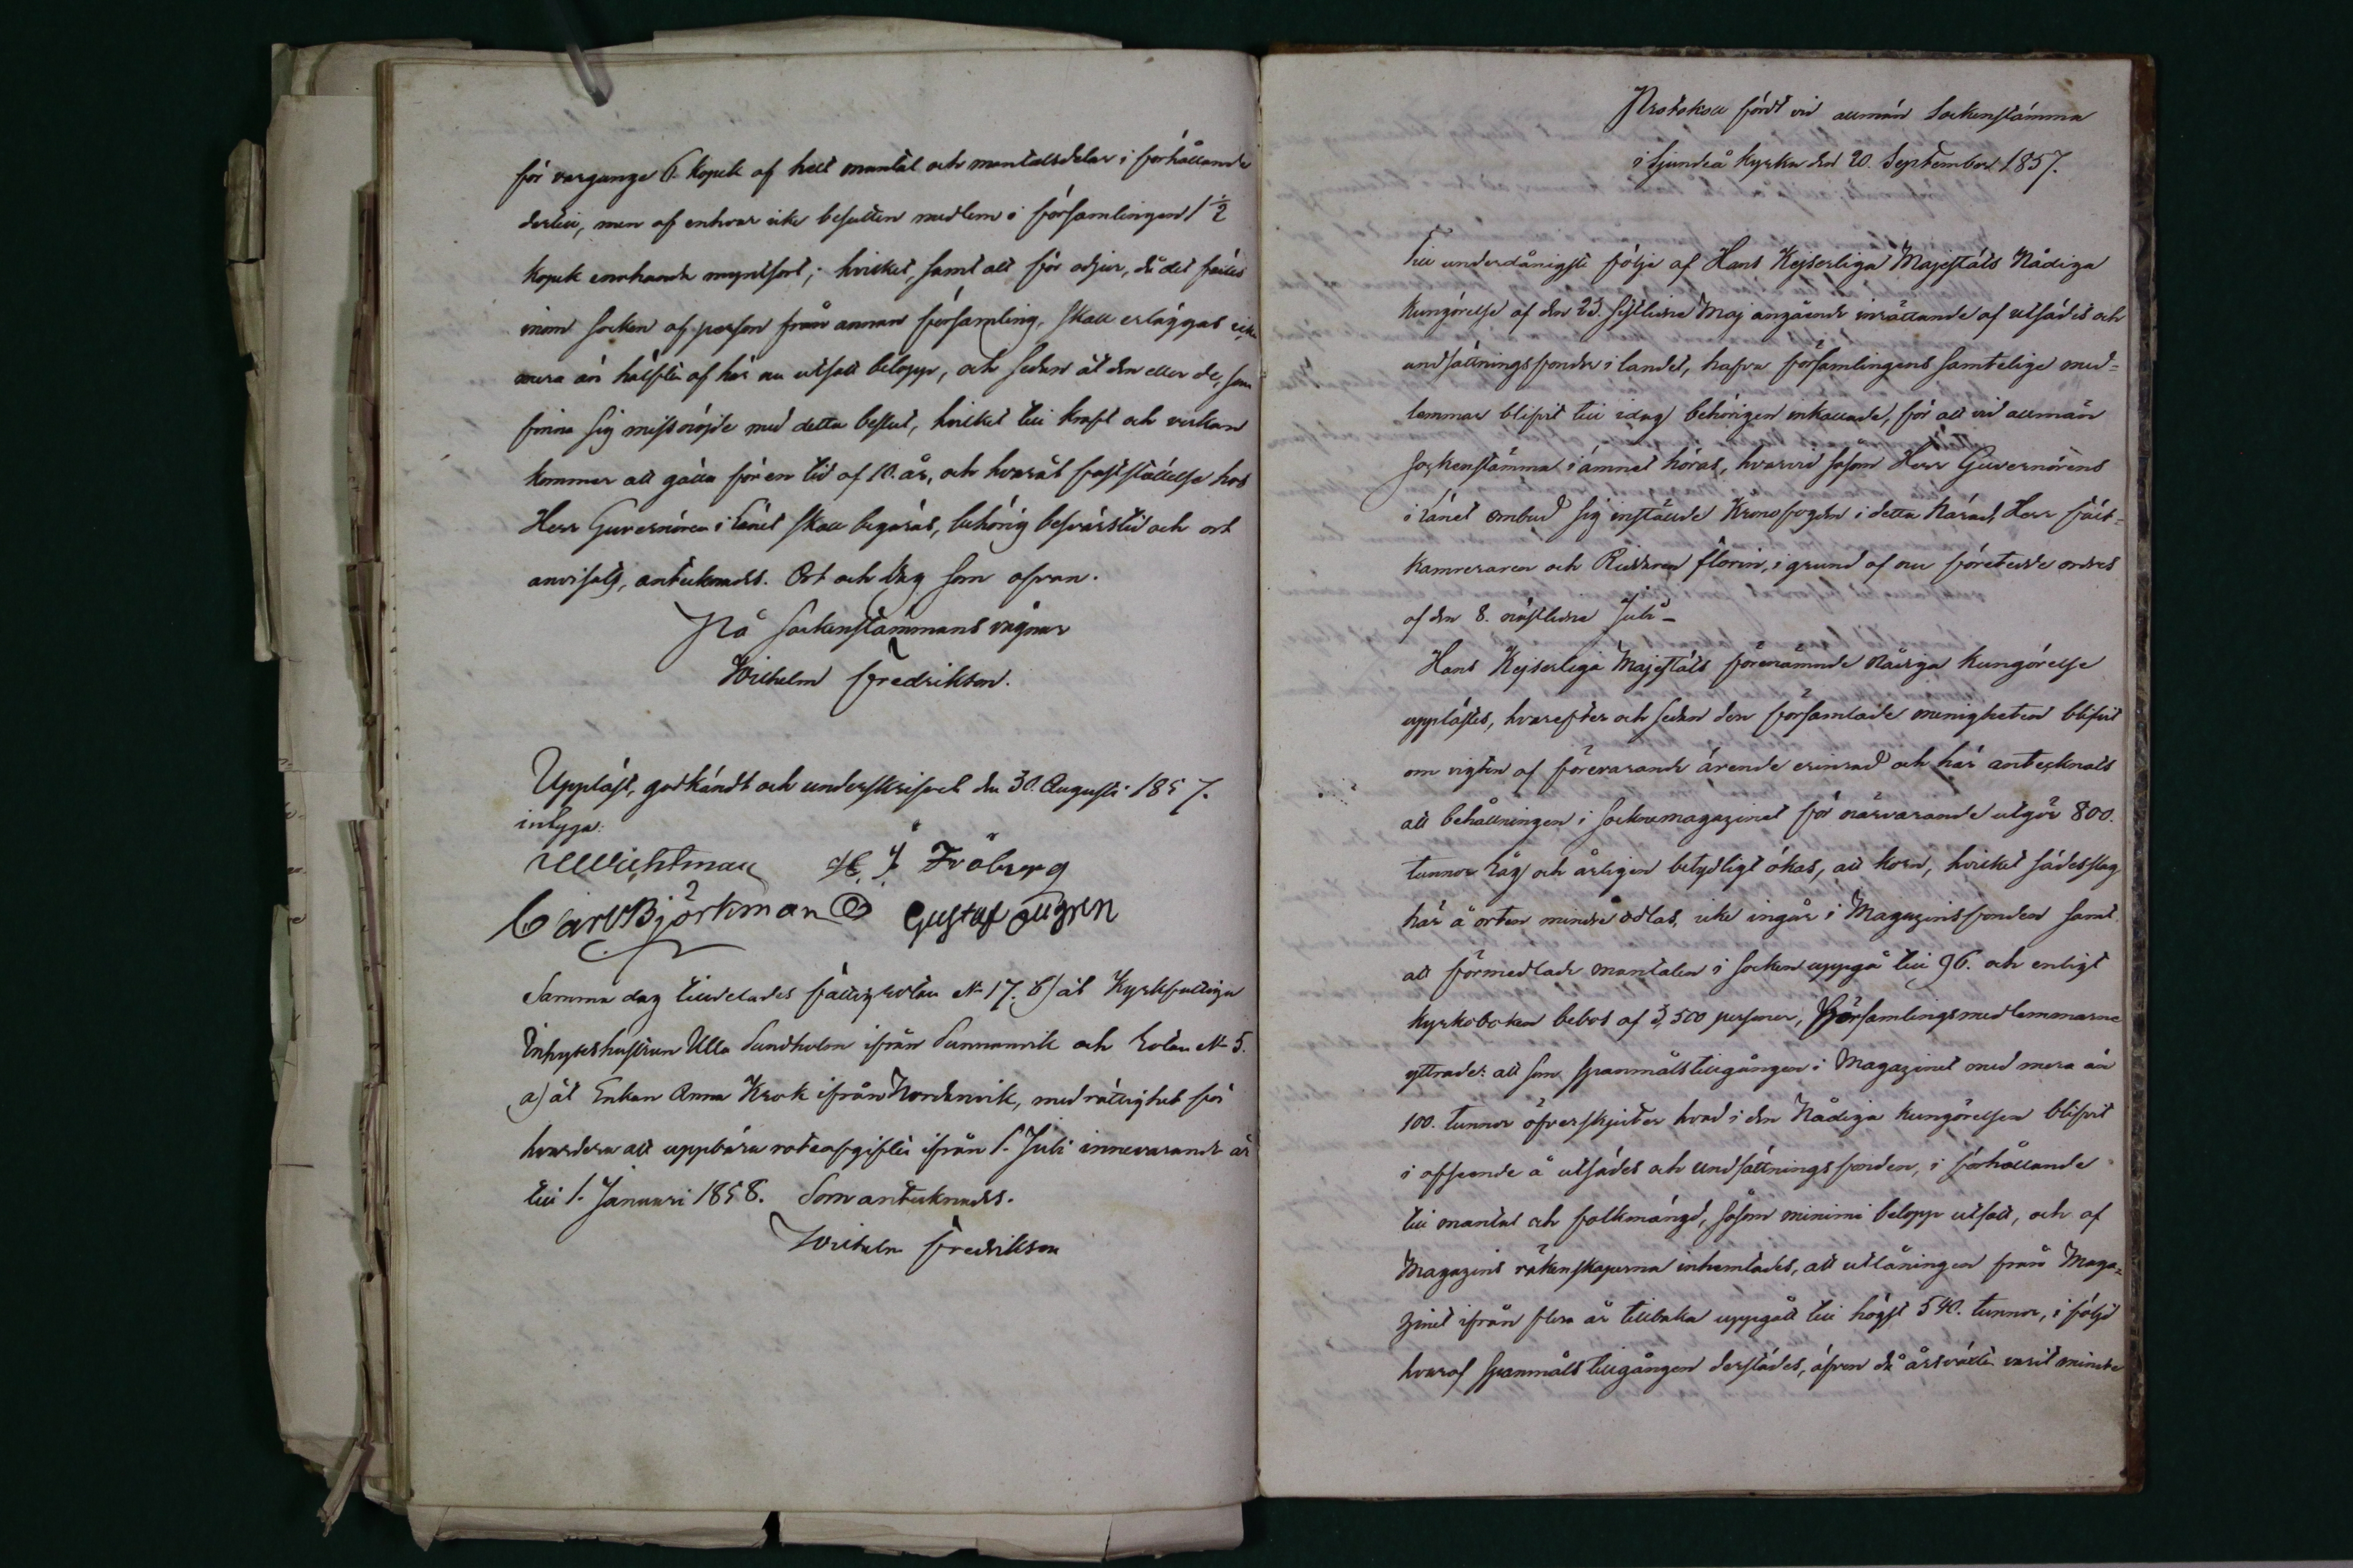 för vargunge 6. kopek af helt mantal och mantalsdelar i förhållande
dertill, men af enhvar icke besutten medlem i församlingen 1 1/2
kopek enahanda myntsort; hvilket, samt allt för odjur, då det fälles
inom socken af person från annan församling, skall erläggas icke
mera än hälften af här nu utsatt belopp, och sedan åt den eller de, som
finna sig missnöjde med detta beslut, hvilket till kraft och verkan
kommer att gälla för en tid af 10. år, och hvarå fastställelse hos
Herr Guvernören i Länet skall begäras, behörig besvärstid och ort
anvisats, antecknades. Ort och dag som ofvan.
På Sockenstämmans vägnar
Wilhelm Fredrikson.
Uppläst, godkändt och underskrifvet den 30. Augusti 1857.
intyga:
Wichtman H. J. Fröberg
Carl Björkman Gustaf
Samma dag tilldelades fattigrotan N 17. b) åt Kyrkfattiga
Inhyseshustrun Ulla Sundholm ifrån Sunnanvik och rotan N 5.
a) åt Enkan Anna Krok ifrån Nordanvik, med rättighet för
hvardera att uppbära roteafgiften ifrån 1. Juli innevarande år
till 1. Januari 1858. Som antecknades.
Wilhelm Fredrikson
Protokoll fördt vid allmän Sockenstämma
i Sjundeå kyrka den 20. September 1857.
Till underdånigste följe af Hans Kejserliga Majestäts Nådiga
Kungörelse af den 23. sistlidne Maj angående inrättande af utsädes och
undsättningsfonder i landet, hafva församlingens samtelige med-
lemmar blifvit till idag behörigen inkallade, för att vid allmän
Sockenstämma i ämnet höras, hvarvid såsom Herr Guvernörens
i länet ombud sig inställde Kronofogden i detta härad, Herr Fält-
kamreraren och Riddaren Florin, i grund af nu företedde ordres
af den 8. nästlidne Juli_
Hans Kejserliga Majestäts förenämnde nådiga Kungörelse
upplästes, hvarefter och sedan den församlade menigheten blifvit
om vigten af förevarande ärende erinrad och här antecknats
att behållningen i Sockenmagazinet för närvarande utgör 800.
tunnor råg och årligen betydligt ökas, att korn, hvilket sädesslag
här å orten mindre odlas, icke ingår i Magazinsfonden samt
att förmedlade mantalen i socken uppgå till 96. och enligt
kyrkoboken bebos af 3,500 personer, Församlingsmedlemmarne
yttrade: att som spannmålstillgången i Magazinet med mera än
100. tunnor öfverskjuter hvad i den Nådiga kungörelsen blifvit
i afseende å utsädes och undsättningsfonden, i förhållande
till mantal och folkmängd, såsom minimi belopp utsatt, och af
Magazins räkenskaperna inhemtades, att utlåningen från Maga-
zinet ifrån flera år tillbaka uppgått till högst 540. tunnor, i följd
hvaraf spannmåls tillgången derstädes, äfven då årsväxten varit mindre